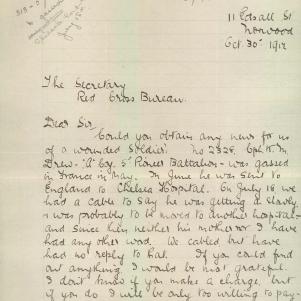 11 Edsall St
Norwood
Oct. 30th 1918
The Secretary
Red Cross Bureau.
Dear Sir,
Could you obtain any news for us
of a wounded soldier. No 2328. Cpl. H. M.
Drew- "A" Coy. 5th Pioneer Battalion - was gassed
in France in May. In June he was sent to
England to Chelsea Hospital. On July 18 we
had a cable to say he was getting on slowly
& was probably to be moved to another hospital-
and since then neither his mother or I have
had any other word. We cabled but have
had no reply to that. If you could find
out anything I would be most grateful.
I don't know if you make a charge, but
if you do I will be only too willing to pay-